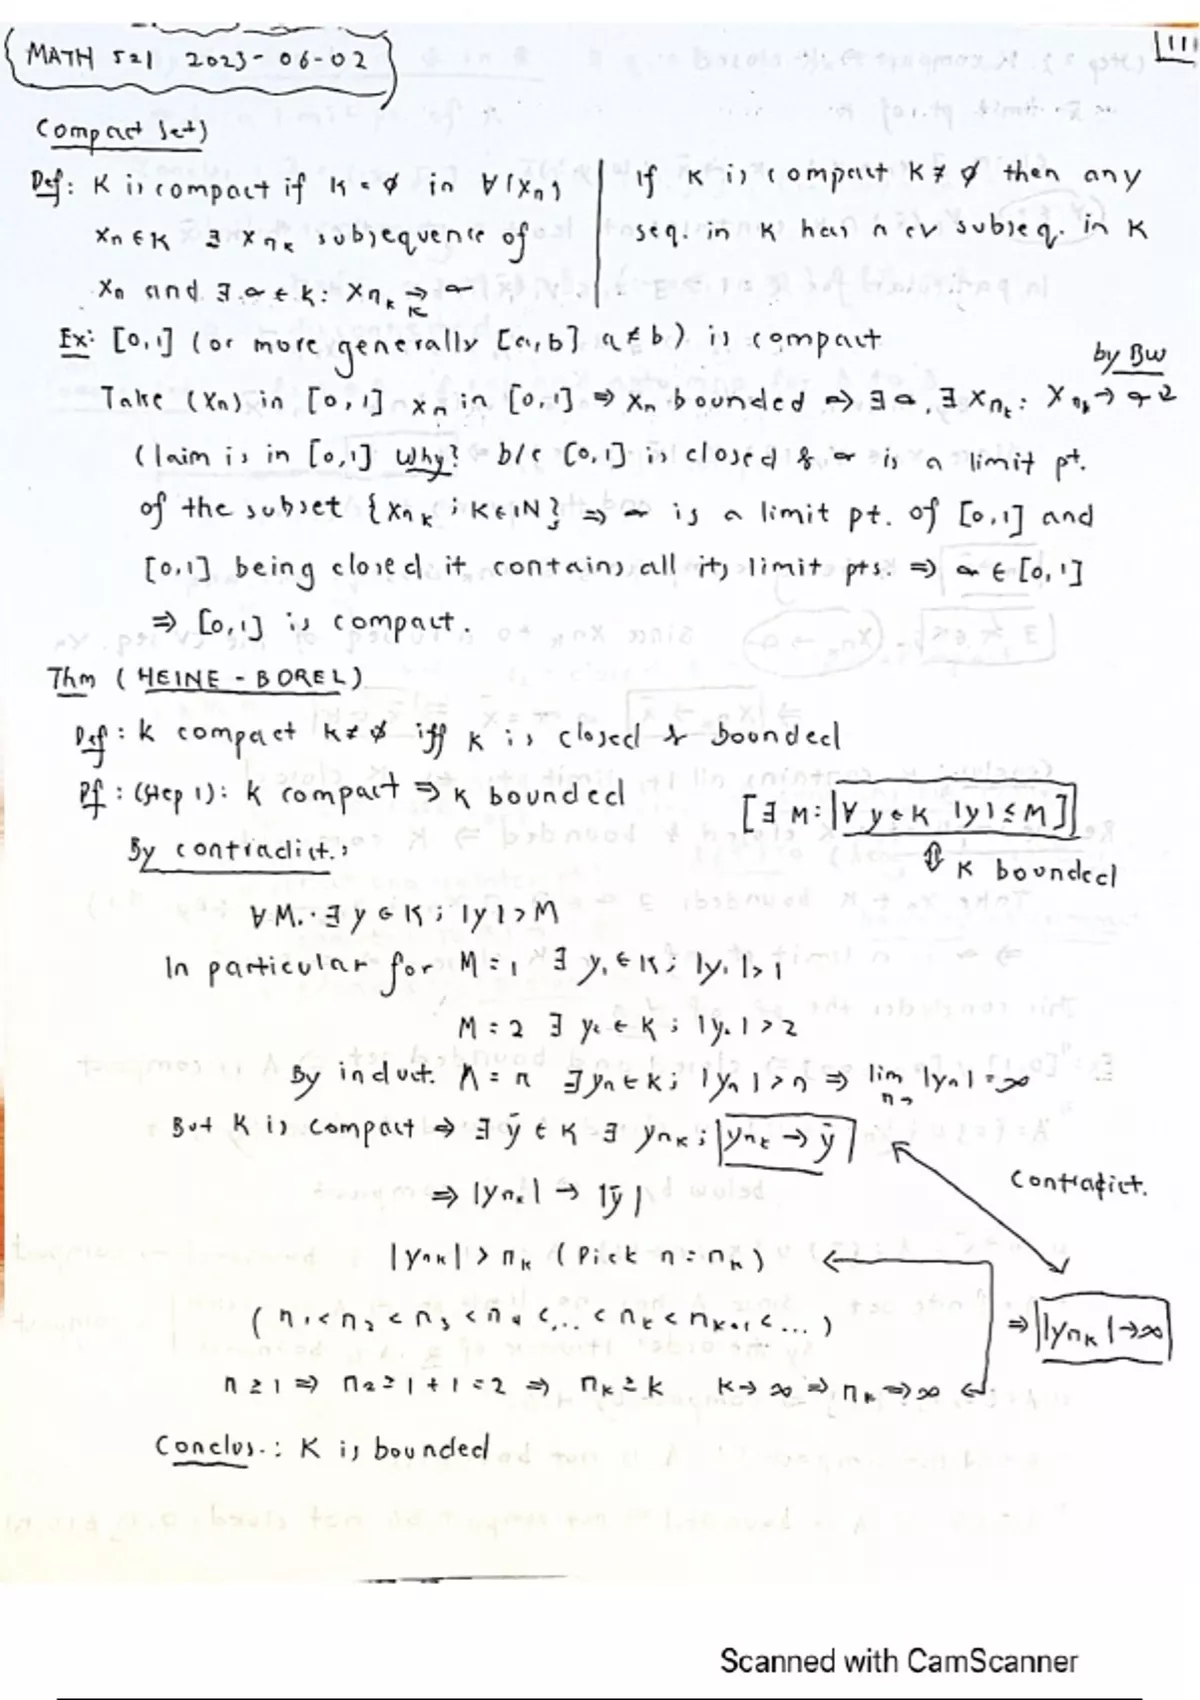 MATH 521 2023-06-02
111
Compact Set)
Def: K is compact if K = ∅ in ∀(xn)
xn ∈ K ∃ xnk subsequence of
xn and ∃ a ∈ K: xnk → a
K
If K is compact K ≠ ∅ then any
seq. in K has a cv subseq. in K
Ex: [0,1] (or more generally [a,b] a≠b) is compact
by BW
Take (xn) in [0,1] xn in [0,1] ⇒ xn bounded ⇒ ∃ a, ∃ xnk: xnk → a
Claim is in [0,1] Why? b/c [0,1] is closed & a is a limit pt.
of the subset {xnk ; K∈IN} ⇒ a is a limit pt. of [0,1] and
[0,1] being closed it contains all its limit pts. ⇒ a ∈ [0,1]
⇒ [0,1] is compact.
Thm (HEINE-BOREL)
Def: K compact K≠∅ iff K is closed & bounded
Pf: (Step 1): K compact ⇒ K bounded
[∃ M: ∀ y∈K |y| ≤ M]
⇕ K bounded
By contradict.:
∀M. ∃ y ∈ K; |y| > M
In particular for M=1 ∃ y1 ∈ K; |y1| > 1
M=2 ∃ y2 ∈ K; |y2| > 2
By induct. M=n ∃ yn ∈ K; |yn| > n ⇒ lim |yn| = ∞
n→
But K is compact ⇒ ∃ ȳ ∈ K ∃ ynk; ynk → ȳ
Contradict.
⇒ |ynk| → |ȳ|
|ynk| > nk (Pick n = nk)
(n1 < n2 < n3 < n4 <... < nk < nk+1 <...)
⇒ |ynk| → ∞
n ≥ 1 ⇒ n2 ≥ 1+1 = 2 ⇒ nk ≥ k K→∞ ⇒ nk → ∞
Conclus.: K is bounded
Scanned with CamScanner